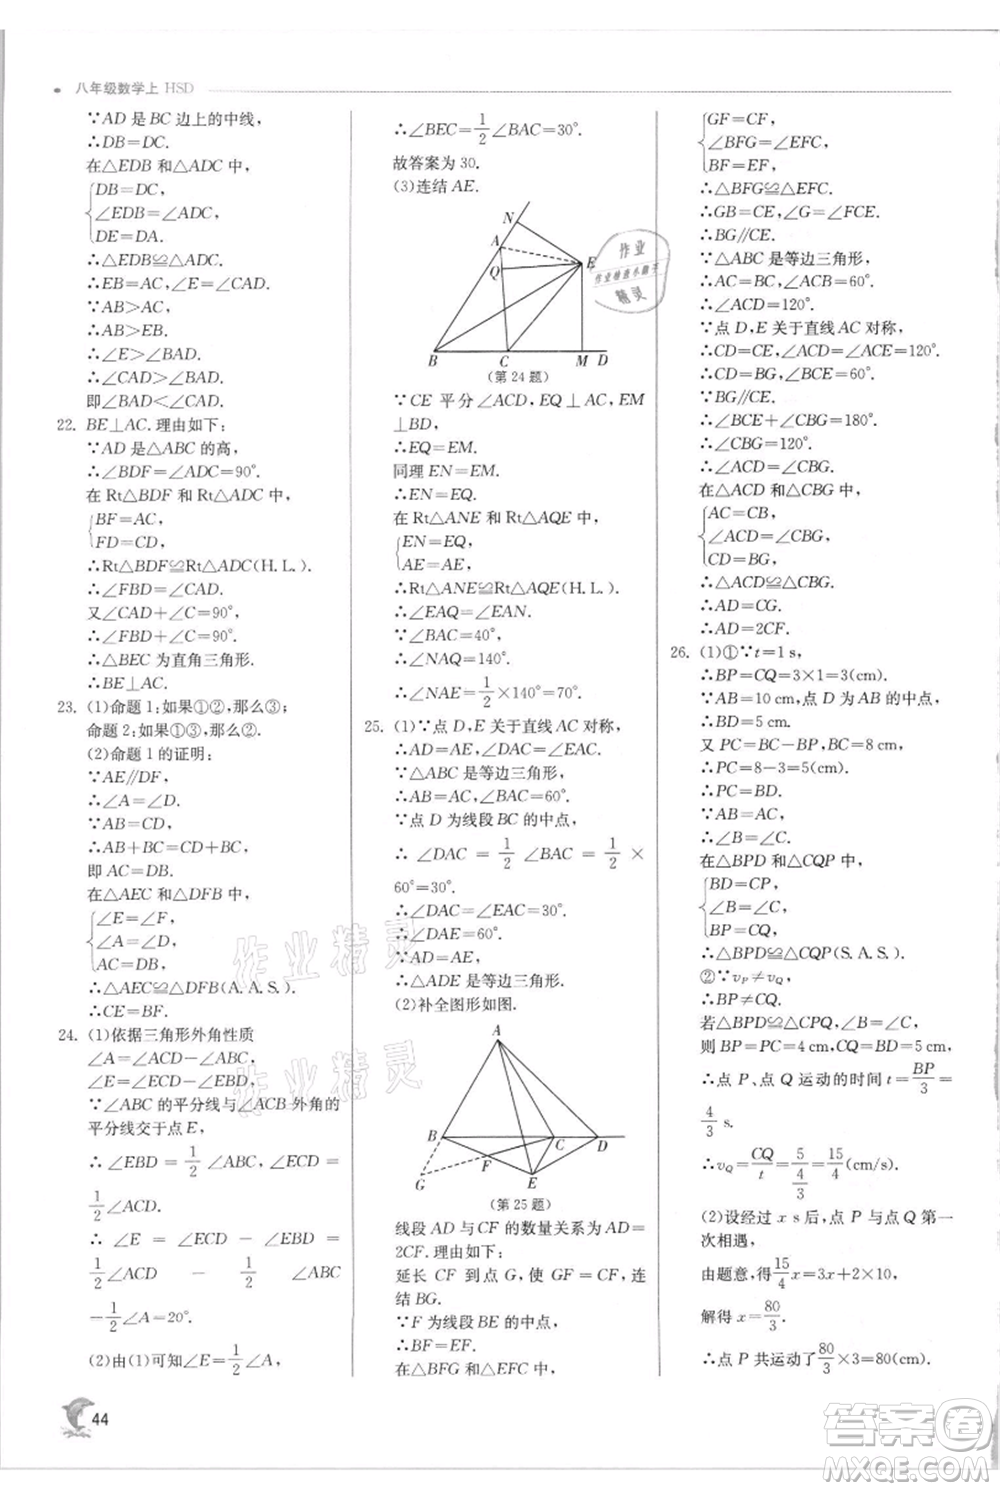 八年级数学上 HSD
∵AD 是 BC 边上的中线，
∴DB=DC.
在△EDB 和△ADC 中，
DB=DC,
∠EDB=∠ADC,
DE=DA.
∴△EDB≌△ADC.
∴EB=AC,∠E=∠CAD.
∵AB>AC,
∴AB>EB.
∴∠E>∠BAD.
∴∠CAD>∠BAD.
即∠BAD<∠CAD.
22. BE⊥AC. 理由如下：
∵AD 是△ABC 的高，
∴∠BDF=∠ADC=90°.
在 Rt△BDF 和 Rt△ADC 中，
BF=AC,
FD=CD,
∴Rt△BDF≌Rt△ADC(H.L.).
∴∠FBD=∠CAD.
又∠CAD+∠C=90°,
∴∠FBD+∠C=90°.
∴△BEC 为直角三角形.
∴BE⊥AC.
23. (1)命题 1:如果①②,那么③;
命题 2:如果①③,那么②.
(2)命题 1 的证明：
∵AE∥DF,
∴∠A=∠D.
∵AB=CD,
∴AB+BC=CD+BC,
即 AC=DB.
在△AEC 和△DFB 中，
∠E=∠F,
∠A=∠D,
AC=DB,
∴△AEC≌△DFB(A.A.S.).
∴CE=BF.
24. (1)依据三角形外角性质
∠A=∠ACD-∠ABC,
∠E=∠ECD-∠EBD.
∵∠ABC 的平分线与∠ACB 外角的
平分线交于点 E,
∴∠EBD=1/2∠ABC,∠ECD=
1/2∠ACD.
∴ ∠E = ∠ECD - ∠EBD =
1/2∠ACD - 1/2(∠ACD
-1/2∠A=20°.
(2)由(1)可知∠E=1/2∠A,
∴∠BEC=1/2∠BAC=30°.
故答案为 30.
(3)连结 AE.
N
A
Q
E
B
C
M
D
(第 24 题)
∵CE 平分∠ACD, EQ⊥AC, EM
⊥BD,
∴EQ=EM.
同理 EN=EM.
∴EN=EQ.
在 Rt△ANE 和 Rt△AQE 中，
EN=EQ,
AE=AE,
∴Rt△ANE≌Rt△AQE(H.L.).
∴∠EAQ=∠EAN.
∵∠BAC=40°,
∴∠NAQ=140°.
∴∠NAE=1/2×140°=70°.
25. (1)∵点 D,E 关于直线 AC 对称，
∴AD=AE,∠DAC=∠EAC.
∵△ABC 是等边三角形，
∴AB=AC,∠BAC=60°.
∵点 D 为线段 BC 的中点，
∴ ∠DAC = 1/2 ∠BAC = 1/2 ×
60°=30°.
∴∠DAC=∠EAC=30°.
∴∠DAE=60°.
∵AD=AE,
∴△ADE 是等边三角形.
(2)补全图形如图.
A
B
C
D
F
G
E
(第 25 题)
线段 AD 与 CF 的数量关系为 AD=
2CF. 理由如下：
延长 CF 到点 G, 使 GF=CF, 连
结 BG.
∵F 为线段 BE 的中点，
∴BF=EF.
在△BFG 和△EFC 中，
GF=CF,
∠BFG=∠EFC,
BF=EF,
∴△BFG≌△EFC.
∴GB=CE,∠G=∠FCE.
∴BG∥CE.
∵△ABC 是等边三角形，
∴AC=BC,∠ACB=60°.
∴∠ACD=120°.
∵点 D,E 关于直线 AC 对称，
∴CD=CE,∠ACD=∠ACE=120°.
∴CD=BG,∠BCE=60°.
∵BG∥CE,
∴∠BCE+∠CBG=180°.
∴∠CBG=120°.
∴∠ACD=∠CBG.
在△ACD 和△CBG 中，
AC=CB,
∠ACD=∠CBG,
CD=BG,
∴△ACD≌△CBG.
∴AD=CG.
∴AD=2CF.
26. (1)①∵t=1 s,
∴BP=CQ=3×1=3(cm).
∵AB=10 cm,点 D 为 AB 的中点，
∴BD=5 cm.
又 PC=BC-BP,BC=8 cm,
∴PC=8-3=5(cm).
∴PC=BD.
∵AB=AC,
∴∠B=∠C.
在△BPD 和△CQP 中，
BD=CP,
∠B=∠C,
BP=CQ,
∴△BPD≌△CQP(S.A.S.).
②∵vP≠vQ,
∴BP≠CQ.
若△BPD≌△CPQ,∠B=∠C,
则 BP=PC=4 cm,CQ=BD=5 cm,
∴点 P、点 Q 运动的时间 t=BP/3=
4/3 s.
∴vQ=CQ/t=5/(4/3)=15/4(cm/s).
(2)设经过 x s 后, 点 P 与点 Q 第一
次相遇，
由题意,得15/4x=3x+2×10,
解得 x=80/3.
∴点 P 共运动了80/3×3=80(cm).
44
作业
精灵
作业精灵
作业精灵
答案卷
MXQE.COM